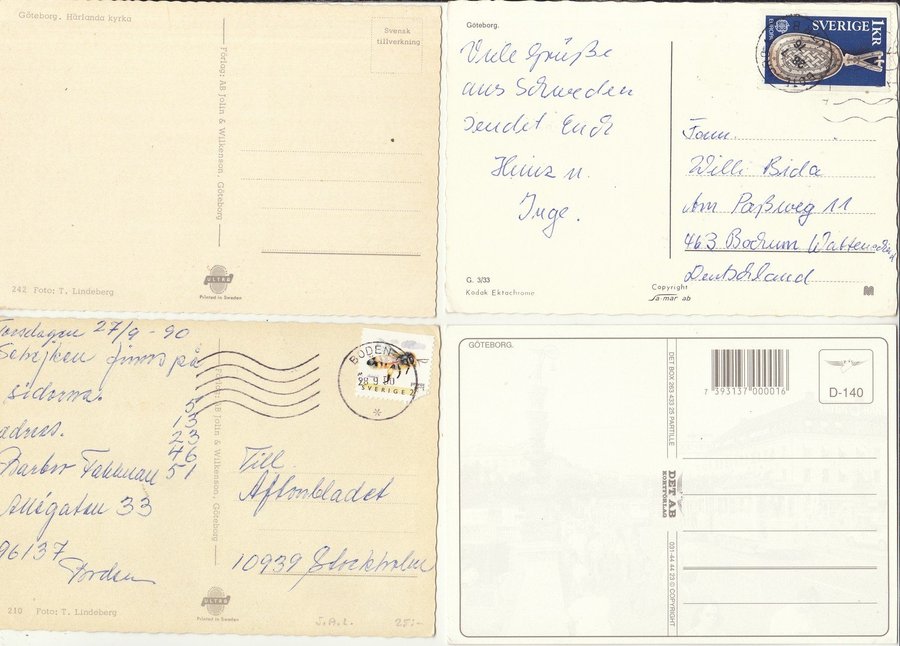 Göteborg. Härlanda kyrka
Svensk
tillverkning
Förlag: AB Jolin & Wilkenson, Göteborg
242 Foto: T. Lindeberg
ULTRA
Printed in Sweden
Göteborg.
Viele Grüße
aus Schweden
sendet Euch
Heinz u.
Inge.
G. 3/33
Kodak Ektachrome
Copyright
Sa-mar ab
EUROPA
SVERIGE 1KR
Fam.
Willi Bida
Am Paßweg 11
463 Bochum Wattenscheid
Deutschland
Torsdagen 27/9 - 90
finns på
sidorna.
5
13
23
46
51
adress.
33
96137
Boden
AB Jolin & Wilkenson, Göteborg
BODEN
28 9 90
SVERIGE 2
Till
Aftonbladet
10939 Stockholm
210 Foto: T. Lindeberg
ULTRA
Printed in Sweden
J.A.L. 25:-
GÖTEBORG.
DET BOX 283 433 25 PARTILLE
DET AB
KORTFÖRLAG
031-44 44 23 © COPYRIGHT
7 393137 000016
D-140